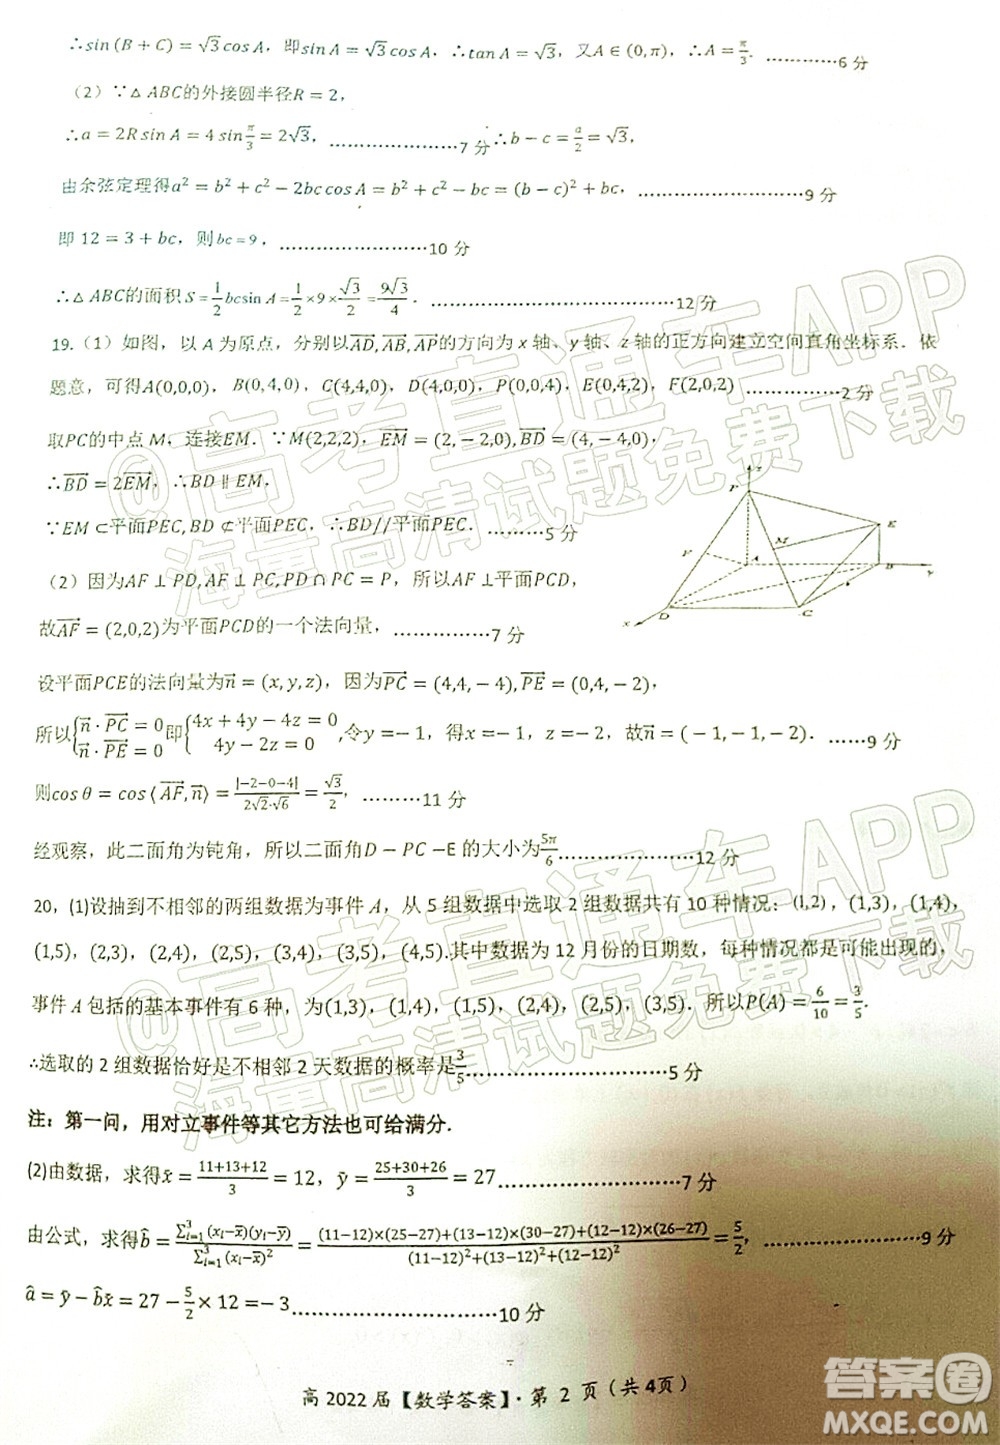 ∴sin(B+C)=√3cosA，即sinA=√3cosA，∴tanA=√3，又A∈(0,π)，∴A=π/3.…………6分
（2）∵△ABC的外接圆半径R=2，
∴a=2RsinA=4sinπ/3=2√3，………………7分∴b−c=a/2=√3，
由余弦定理得a²=b²+c²−2bccosA=b²+c²−bc=(b−c)²+bc，…………………9分
即12=3+bc，则bc=9．………………10分
∴△ABC的面积S=1/2bcsinA=1/2×9×√3/2=9√3/4．…………………………12分
19.（1）如图，以A为原点，分别以AD→,AB→,AP→的方向为x轴、y轴、z轴的正方向建立空间直角坐标系．依
题意，可得A(0,0,0)，B(0,4,0)，C(4,4,0)，D(4,0,0)，P(0,0,4)，E(0,4,2)，F(2,0,2)…………2分
取PC的中点M，连接EM．∵M(2,2,2),EM→=(2,−2,0),BD→=(4,−4,0)，
∴BD→=2EM→，∴BD∥EM，
∵EM⊂平面PEC,BD⊄平面PEC，∴BD//平面PEC．…………5分
（2）因为AF⊥PD,AF⊥CD,PD∩PC=P，所以AF⊥平面PCD，
故AF→=(2,0,2)为平面PCD的一个法向量，……………7分
z
P
E
M
F
A
B
y
D
C
x
设平面PCE的法向量为n→=(x,y,z)，因为PC→=(4,4,−4),PE→=(0,4,−2)，
所以{n→·PC→=0 n→·PE→=0即{4x+4y−4z=0 4y−2z=0,令y=−1，得x=−1，z=−2，故n→=(−1,−1,−2)．……9分
则cosθ=cos⟨AF→,n→⟩=|−2−0−4|/2√2·√6=√3/2，………11分
经观察，此二面角为钝角，所以二面角D−PC−E的大小为5π/6………………12分
20，(1)设抽到不相邻的两组数据为事件A，从5组数据中选取2组数据共有10种情况：(1,2)，(1,3)，(1,4)，
(1,5)，(2,3)，(2,4)，(2,5)，(3,4)，(3,5)，(4,5).其中数据为12月份的日期数，每种情况都是可能出现的，
事件A包括的基本事件有6种，为(1,3)，(1,4)，(1,5)，(2,4)，(2,5)，(3,5)．所以P(A)=6/10=3/5.
∴选取的2组数据恰好是不相邻2天数据的概率是3/5…………………………5分
注：第一问，用对立事件等其它方法也可给满分．
(2)由数据，求得x̄=11+13+12/3=12，ȳ=25+30+26/3=27…………………………7分
由公式，求得b̂=∑³ᵢ₌₁(xᵢ−x̄)(yᵢ−ȳ)/∑³ᵢ₌₁(xᵢ−x̄)²=(11−12)×(25−27)+(13−12)×(30−27)+(12−12)×(26−27)/(11−12)²+(13−12)²+(12−12)²=5/2，…………………9分
â=ȳ−b̂x̄=27−5/2×12=−3…………………………10分
高2022届【数学答案】·第 2 页（共4页）
@高考直通车APP
海量高清试题免费下载
@高考直通车APP
海量高清试题免费下载
答案圈
MXQE.COM